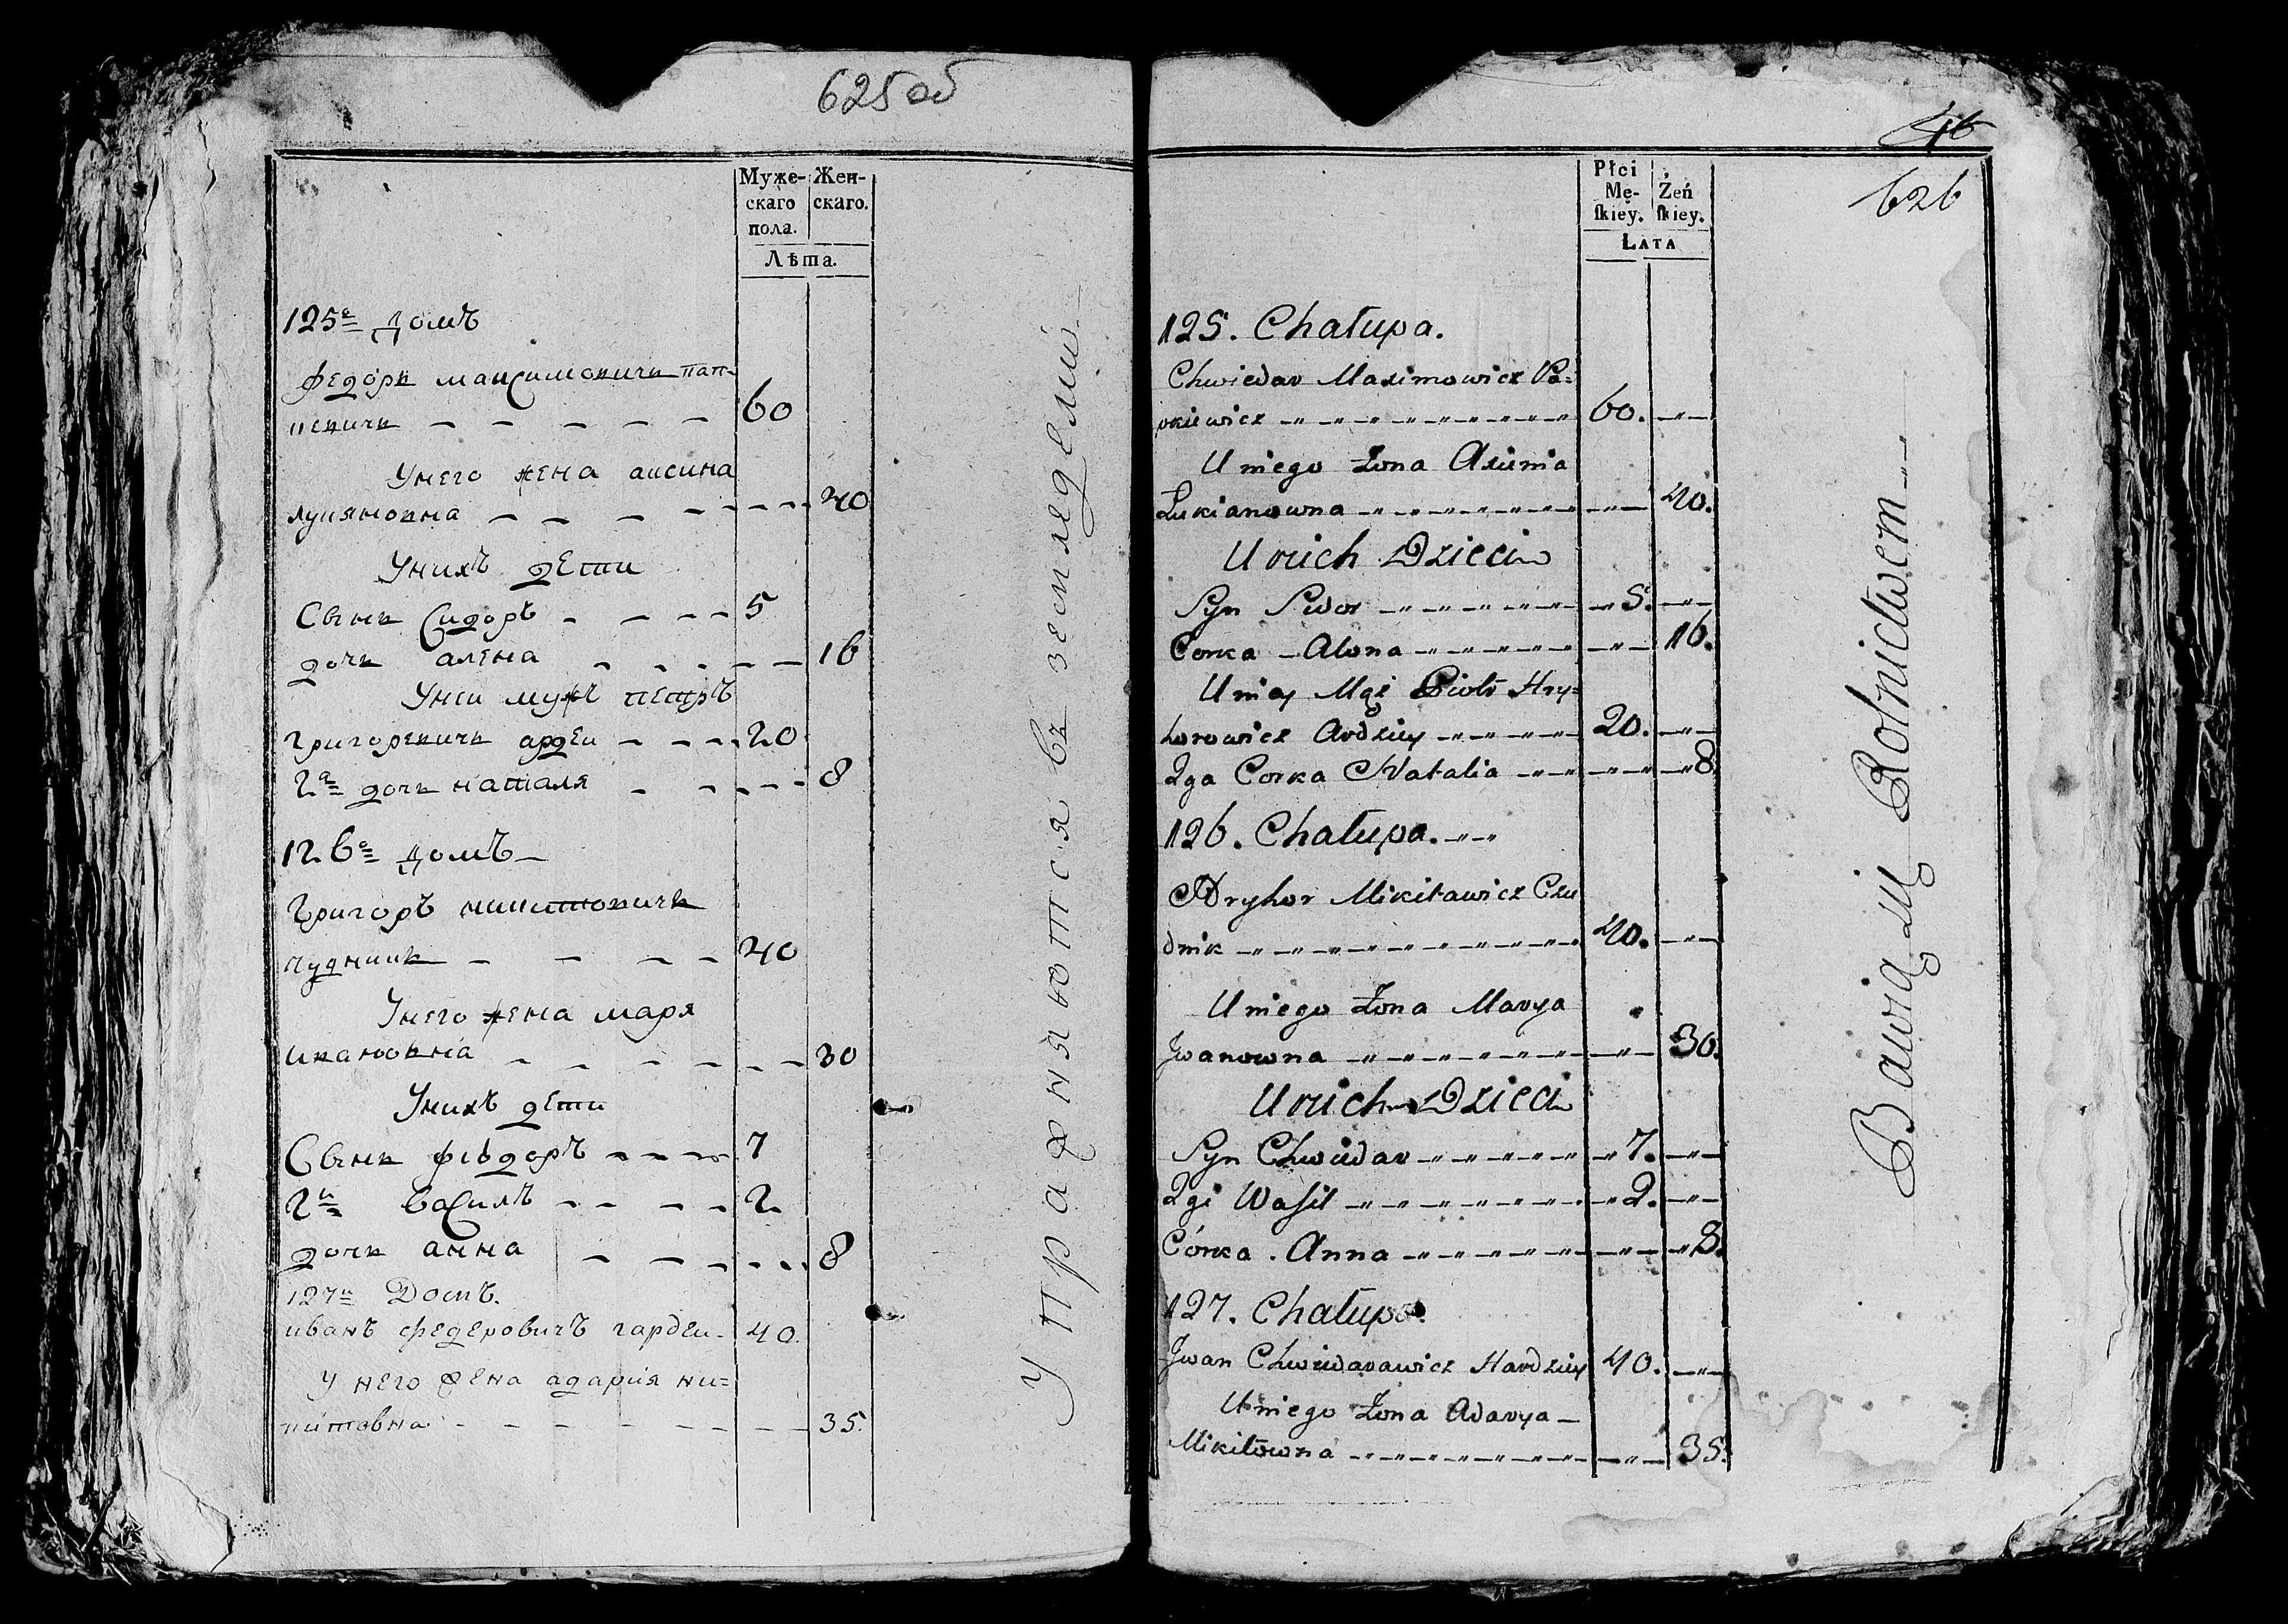 625 об
Муже-
скаго
пола.
Жен-
скаго.
Лѣта.
125е домъ
Федоръ Максимовичъ Пап-
кевичъ — — — — — 60
У него жена Аксиня
Лукяновна — — — — — — — 40
У нихъ дети
Сынъ Сидоръ — — — — 5
дочь алена — — — — — 16
У неи мужъ петръ
Григоревичъ ардеи — — — 20
2я дочь наталя — — — — 8
126е домъ —
Григоръ микитовичъ
чудникъ — — — — 40
У него жена маря
ивановна — — — — — — — 30
У нихъ дети
Сынъ фіодоръ — — — — 7
2й василъ — — — — 2
дочь анна — — — — — — 8
127й Домъ.
иванъ федеровичъ гардеи — 40.
У него жена адарія ни=
китовна — — — — — — — — — 35.
Упражняются въ земледелии —
46
626
Płci
Mę-
ſkiey.
Żeń
ſkiey.
LATA
125. Chałupa.
Chwiedar Maximowicz Pa=
pkiewicz 60.
U niego Żona Axinia
Łukianowna 40.
U nich Dzieci
Syn Sidor 5.
Corka — Alona 16.
U niey Mąż Piotr Hry=
horowicz Ardziey 20.
2ga Corka Natalia 8
126. Chałupa.
Hryhor Mikitawicz Czu
dnik 40.
U niego Żona Marya
Jwanowna 30.
U nich Dzieci
Syn Chwiedar 7.
2gi Waſil 2.
Córka. Anna 8.
127. Chałupa.
Jwan Chwiedarawicz Hardziey 40.
U niego Żona Adarya —
Mikitowna 35.
Bawią się Rolnictwem